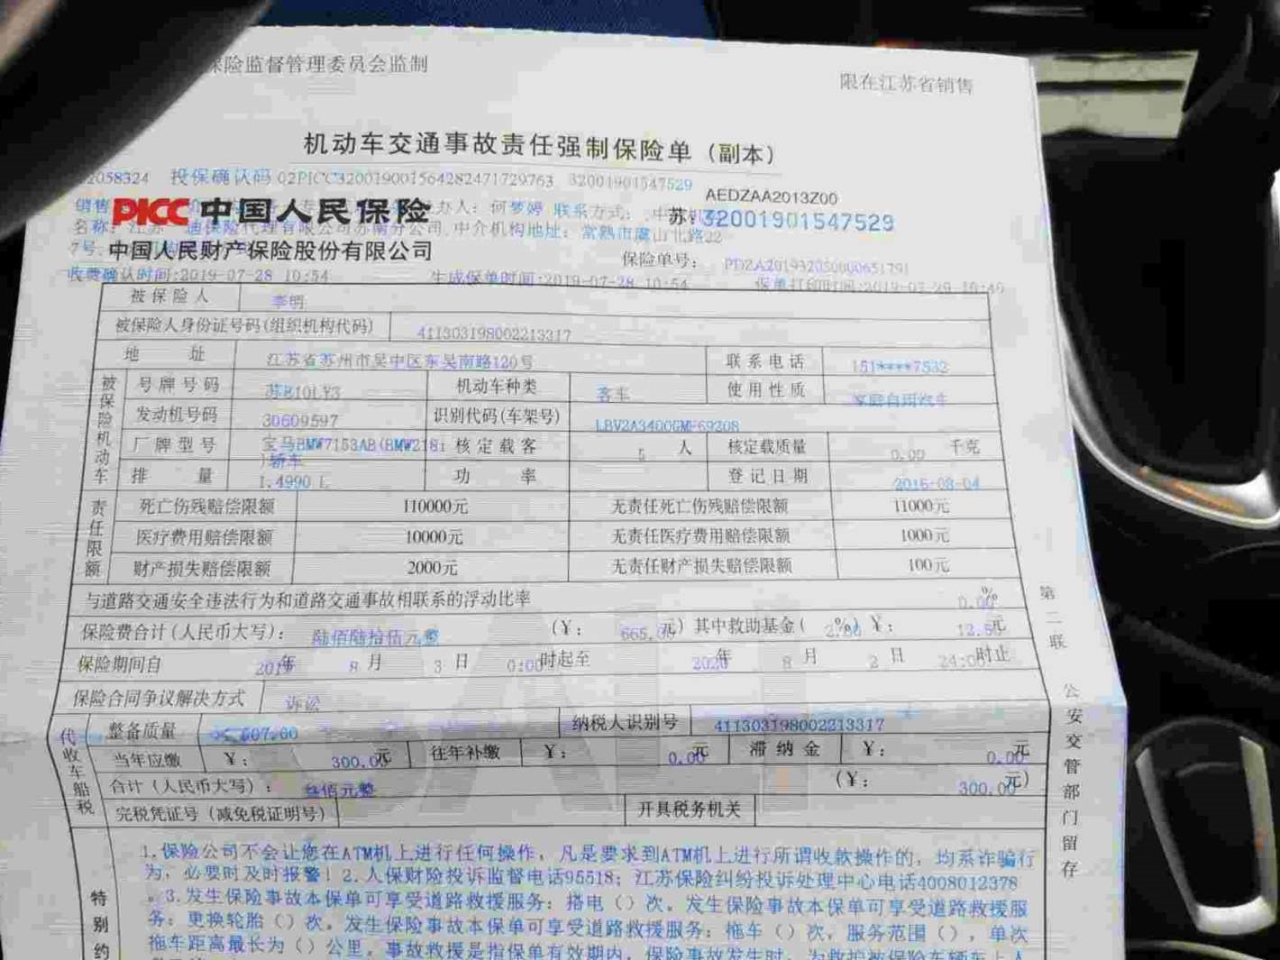 保险监督管理委员会监制
限在江苏省销售
机动车交通事故责任强制保险单（副本）
2058324 投保确认码 02PICC320019001564282471729763 32001901547529
AEDZAA2013Z00
PICC 中国人民保险
苏: 32001901547529
中国人民财产保险股份有限公司
保险单号:
收费确认时间:2019-07-28 10:54 生成保单时间:2019-07-28 10:54
被保险人 李明
被保险人身份证号码(组织机构代码) 411303198002213317
地址 江苏省苏州市吴中区东吴南路120号 联系电话 151****7532
被保险机动车
号牌号码 机动车种类 客车 使用性质 家庭自用汽车
发动机号码 30609597 识别代码(车架号)
厂牌型号 宝马BMW7153AB(BMW218i 核定载客 5 人 核定载质量 0.00 千克
)轿车
排量 1.4990 L 功率 登记日期
责任限额
死亡伤残赔偿限额 110000元 无责任死亡伤残赔偿限额 11000元
医疗费用赔偿限额 10000元 无责任医疗费用赔偿限额 1000元
财产损失赔偿限额 2000元 无责任财产损失赔偿限额 100元
与道路交通安全违法行为和道路交通事故相联系的浮动比率 0.00 %
保险费合计(人民币大写): 陆佰陆拾伍元整 (¥: 665.00 元) 其中救助基金( %) ¥: 元
保险期间自 2019 年 8 月 3 日 0:00 时起至 2020 年 8 月 2 日 24:00 时止
保险合同争议解决方式 诉讼
代收车船税
整备质量 纳税人识别号 411303198002213317
当年应缴 ¥: 300.00 元 往年补缴 ¥: 0.00 元 滞纳金 ¥: 0.00 元
合计(人民币大写): 叁佰元整 (¥: 300.00 元)
完税凭证号(减免税证明号) 开具税务机关
特别约
1.保险公司不会让您在ATM机上进行任何操作，凡是要求到ATM机上进行所谓收款操作的，均系诈骗行
为，必要时及时报警！2.人保财险投诉监督电话95518；江苏保险纠纷投诉处理中心电话4008012378
。3.发生保险事故本保单可享受道路救援服务：搭电（）次，发生保险事故本保单可享受道路救援服
务：更换轮胎（）次，发生保险事故本保单可享受道路救援服务：拖车（）次，服务范围（），单次
拖车距离最长为（）公里。事故救援是指保单有效期内，保险事故发生时，
第二联
公安交管部门留存